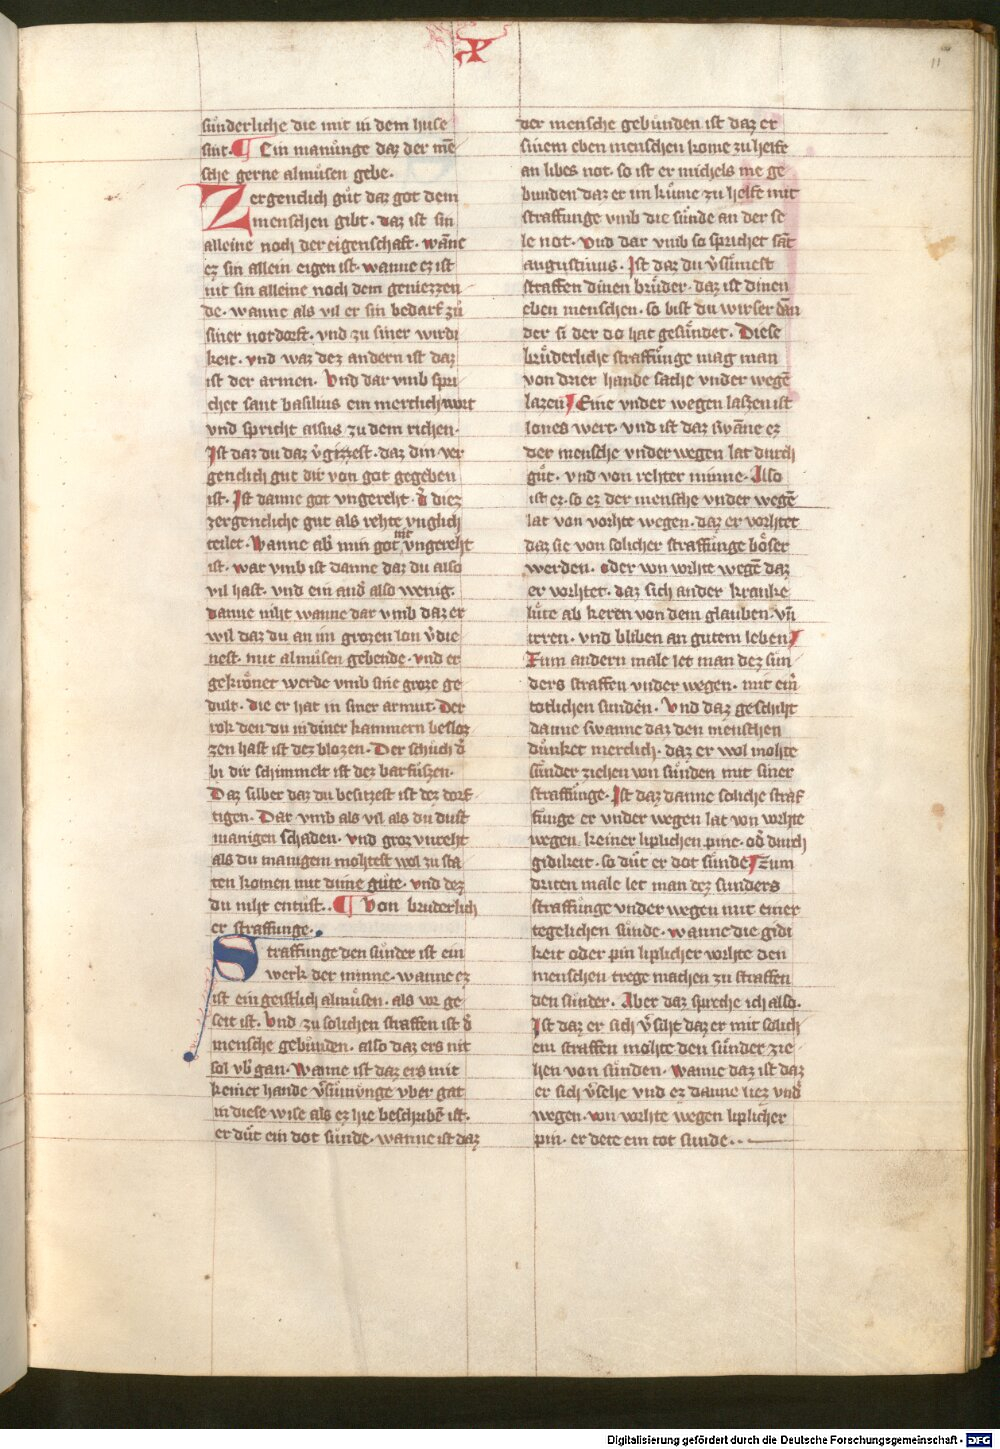 x
11
sünderliche die mit in dem huse
sint. ¶ Ein manünge daz der mē
sche gerne almůsen gebe.
Zergenclich gůt daz got dem
menschen gibt. daz ist sin
alleine noch der eigenschaft. wāne
ez sin allein eigen ist. wanne ez ist
nit sin alleine noch dem geniezzen
de. wanne als vil er sin bedarf zů
siner notdorft. vnd zu siner wirdi
keit. vnd waz dez andern ist daz
ist der armen. Vnd dar vmb spri
chet sant basilius ein merclich wort
vnd spricht alsus zu dem richen.
Ist daz du daz v̉gizzest. daz din ver
genclich gut dir von got gegeben
ist. Ist danne got vngereht. d̉ diez
zergencliche gut als rehte vnglich
teilet. Wanne ab̉ min got nit vngereht
ist. war vmb ist danne daz du also
vil hast. vnd ein and̉ also wenig.
danne niht wanne dar vmb daz er
wil daz du an im grozen lon v̉die
nest. mit almůsen gebende. vnd er
gekrőnet werde vmb sine groze ge
dult. die er hat in siner armut. Der
rok den du in diner kammern besloz
zen hast ist dez blozen. Der schůch d̉
bi dir schimmelt ist dez barfůszen.
Daz silber daz du besitzest ist dez dorf
tigen. Dar vmb als vil als du dust
manigen schaden. vnd groz vnreht
als du manigem mohtest wol zu sta
ten komen mit dime gůte. vnd dez
du niht entůst.. ¶ Von bruderlich
er straffunge.
Straffunge den sůnder ist ein
werk der minne. wanne ez
ist ein geistlich almůsen. als vor ge
seit ist. Vnd zu solichen straffen ist d̉
mensche gebůnden. also daz ers nit
sol vb̉ gan. Wanne ist daz ers mit
keiner hande v̉sůmůnge vber gat
in diese wise als ez hie beschribē ist.
er důt ein dot sůnde. wanne ist daz
der mensche gebůnden ist daz er
sinem eben menschen kome zu helfe
an libes not. so ist er michels me ge
bunden daz er im kůme zu helfe mit
straffunge vmb die sůnde an der se
le not. Vnd dar vmb so sprichet sāt
augustinus. Ist daz du v̉sůmest
straffen dinen brůder. daz ist dinen
eben menschen. so bist du wirser dān
der si der do hat gesůndet. Diese
brůderliche straffůnge mag man
von drier hande sache vnder wegē
lazen ¶ Eine vnder wegen laszen ist
lones wert. vnd ist daz swāne ez
der mensche vnder wegen lat durch
gůt. vnd von rehter minne. Also
ist ez. so ez der mensche vnder wegē
lat von vorhte wegen. daz er vorhtet
daz sie von solicher straffůnge bőser
werden. oder von vorhte wegē daz
er vorhtet. daz sich ander kranke
lůte ab keren von dem glauben. vn̄
irren. vnd bliben an gutem leben ¶
Zum andern male let man dez sůn
ders straffen vnder wegen. mit ein̉
totlichen sunden. Vnd daz geschiht
danne swanne daz den menschen
důnket merclich. daz er wol mohte
sůnder ziehen von sůnden mit siner
straffůnge. Ist daz danne soliche straf
fůnge er vnder wegen lat von vorhte
wegen. keiner liplichen pine. od̉ durch
gidikeit. so důt er dot sůnde ¶ Zum
driten male let man dez sunders
straffůnge vnder wegen mit einer
tegelichen sůnde. wanne die gidi
keit oder pin liplicher vorhte den
menschen trege machen zu straffen
den sůnder. Aber daz spreche ich also.
Ist daz er sich v̉siht daz er mit solich
em straffen mohte den sůnder zie
hen von sůnden. Wanne daz ist daz
er sich v̉sehe vnd ez danne liez vnd̉
wegen. von vorhte wegen liplicher
pin. er dete ein tot sunde..
Digitalisierung gefördert durch die Deutsche Forschungsgemeinschaft - DFG